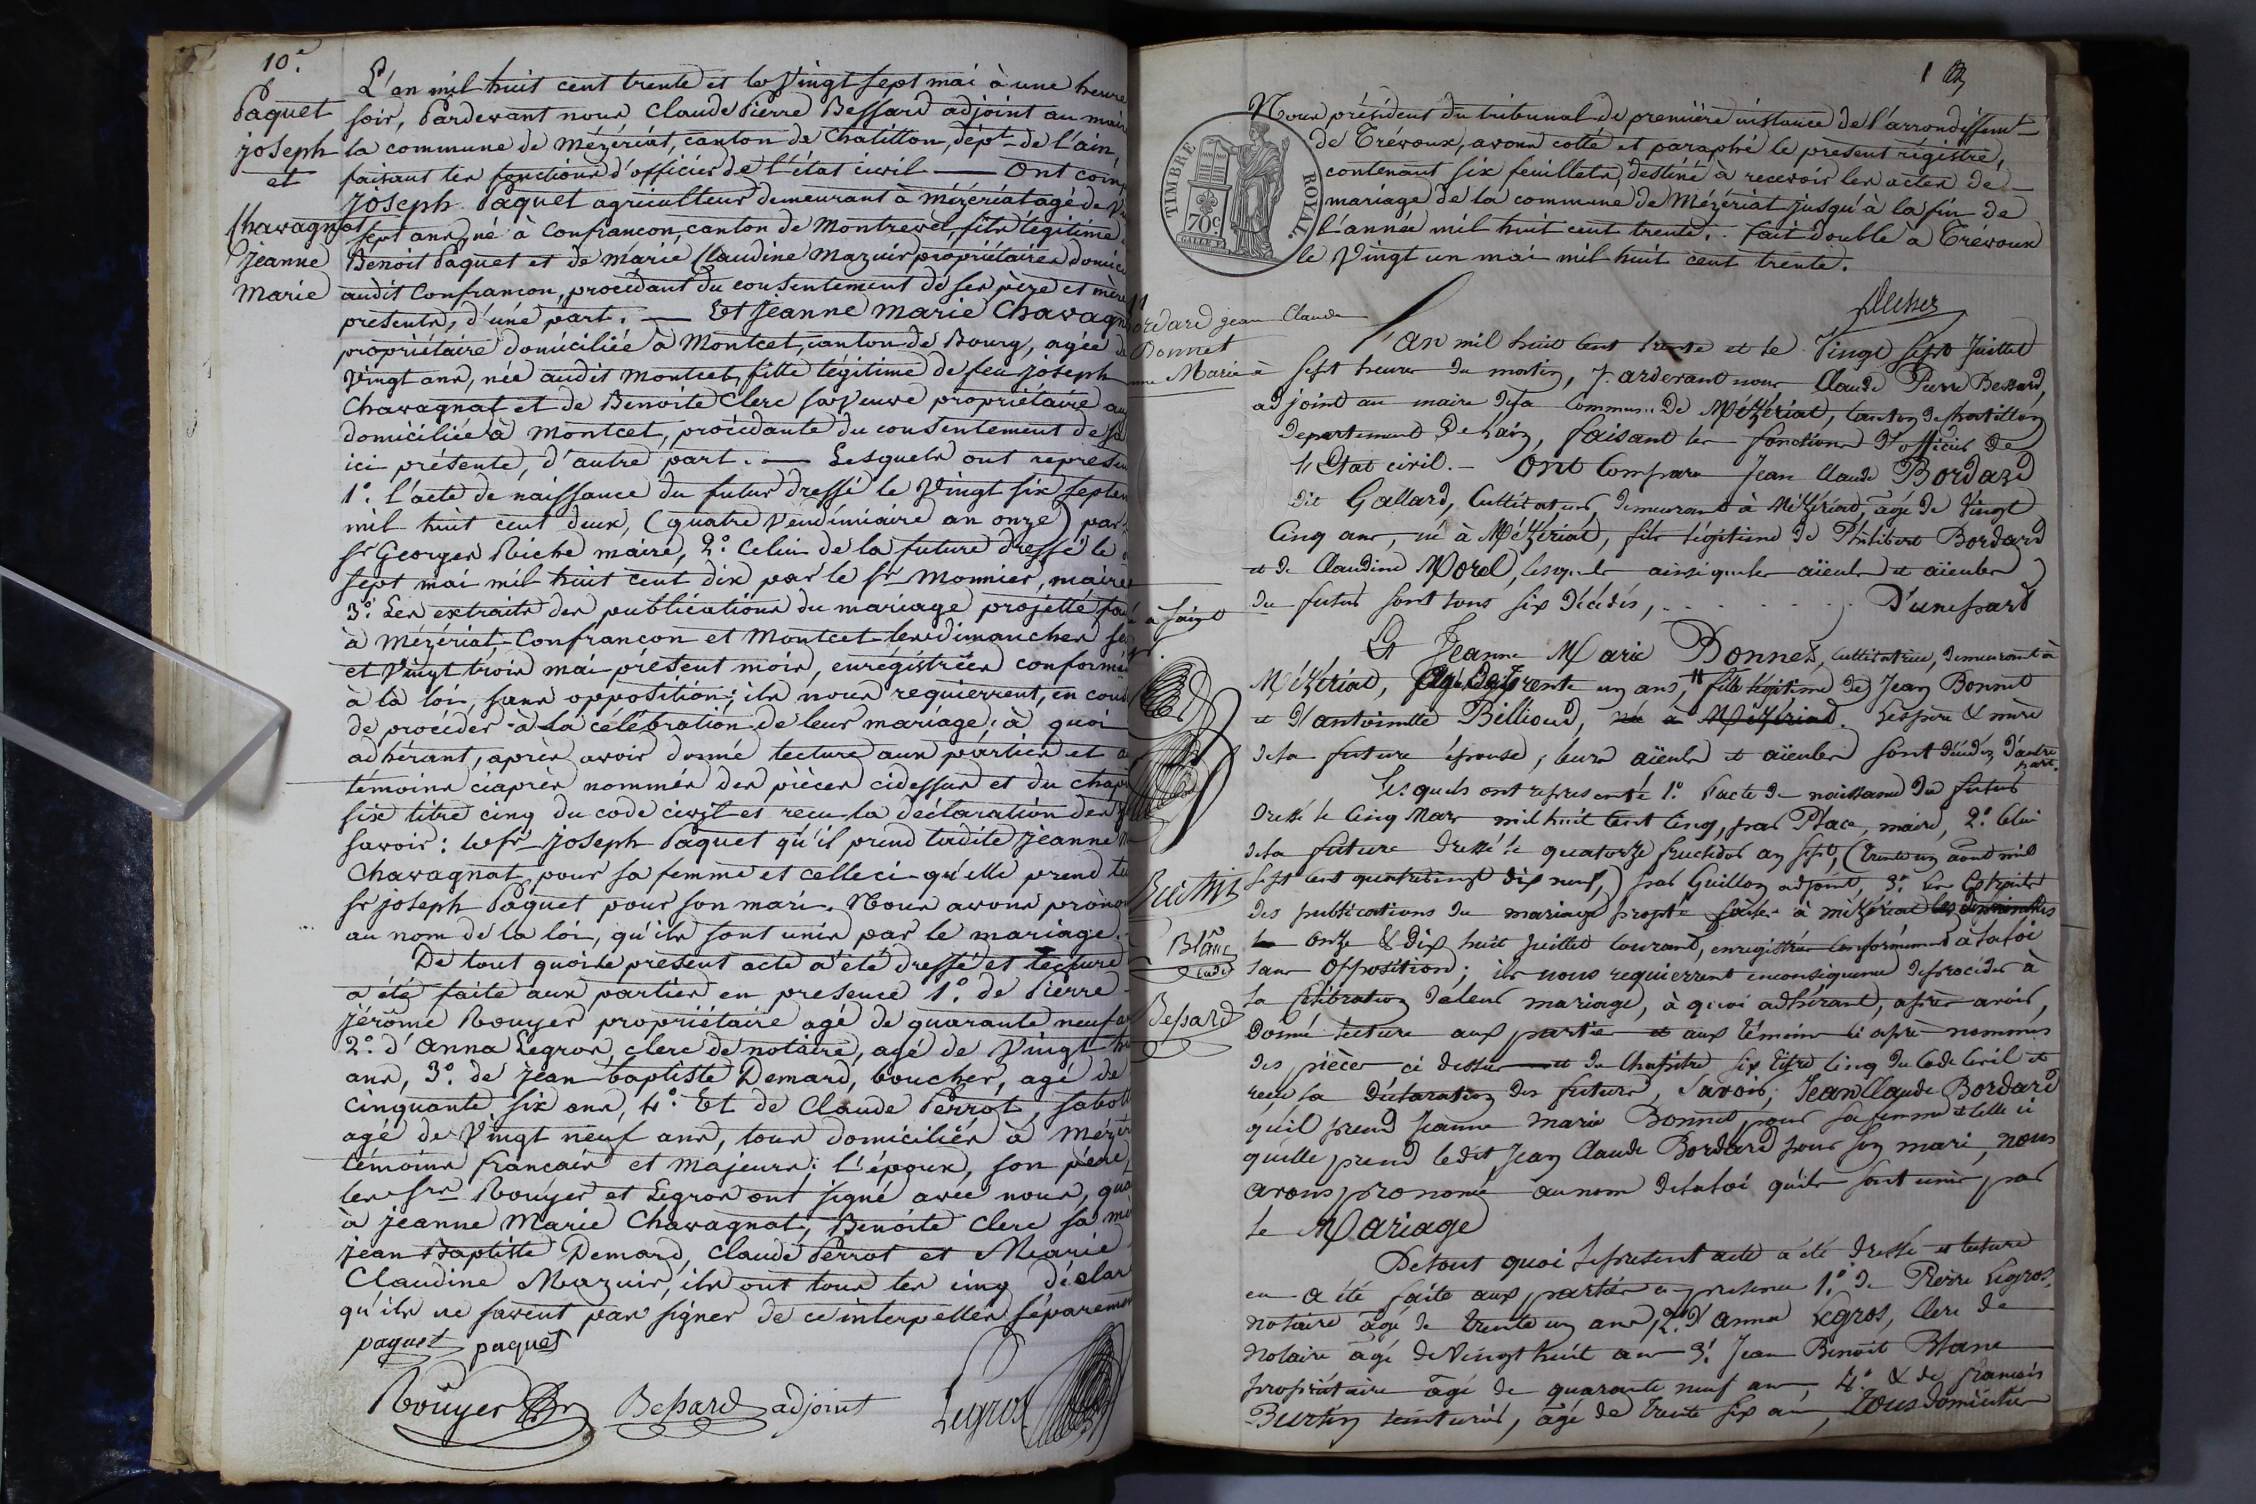 10.e
Paquet
joseph
et
Chavagnat
jeanne
Marie
L'an mil huit cent trente et le Vingt sept mai à une heure
soir, Pardevant nous Claude Pierre Bessard adjoint au mair
la commune de Mézériat, canton de Chatillon, dépt. de l'ain,
faisant les fonctions d'officier de l'état civil — Ont comp
joseph Paquet agriculteur demeurant à mézériat agé de Vin
sept ans, né à Confrancon, canton de Montrevel, fils légitime
Benoit Paquet et de Marie Claudine Mazuir propriétaires domici
audit Confrancon, procédant du consentement de ses père et mère
présents, d'une part. — Et jeanne marie Chavagn
propriétaire domiciliée à Montcet, canton de Bourg, agée de
Vingt ans, née audit Montcet, fille légitime de feu joseph
Chavagnat et de Benoite Clerc sa Veuve propriétaire au
domiciliée à Montcet, procédante du consentement de sa
ici présente, d'autre part. — Lesquels ont représen
1.º l'acte de naissance du futur dressé le Vingt six septem
mil huit cent deux, (quatre Vendimiaire an onze) par
sr Georges Riche maire, 2.º Celui de la future dressé le
sept mai mil huit cent dix par le sr Monnier, maire
3.º Les extraits des publications du mariage projetté fai
à Mézériat, Confrancon et Montcet les dimanches sei
et Vingt trois mai présent mois, enrégistrées conformé
à la loi, sans opposition; ils nous requierrent, en cons
de procéder à la célébration de leur mariage; à quoi
adhérant, après avoir donné lecture aux parties et a
témoins ciaprès nommés des pièces cidessus et du chapi
six titre cinq du code civil et reçu la déclaration des
savoir: le sr joseph Paquet qu'il prend ladite jeanne m
Chavagnat pour sa femme et celleci qu'elle prend le
sr joseph Paquet pour son mari. Nous avons pronon
au nom de la loi, qu'ils sont unis par le mariage.
De tout quoi le présent acte a été dressé et lecture
a été faite aux parties en presence 1.º de Pierre
jérôme Rouyer propriétaire agé de quarante neuf a
2.º d'Anna Legros, clerc de notaire, agé de Vingt hu
ans, 3.º de jean baptiste Demard, boucher, agé de
cinquante six ans, 4.º Et de Claude Perrot, sabot
agé de Vingt neuf ans, tous domiciliés à Mézér
témoins français et majeurs; l'époux, son père,
les srs Rouyer et Legros ont signé avec nous, qua
à jeanne Marie Chavagnat, Benoite Clerc sa mè
jean Baptiste Demard, Claude Perrot et Marie
Claudine Mazuir, ils ont tous les cinq déclar
qu'ils ne savent pas signer de ce interpellés séparemen
paquet paquet
Rouyer Bessard adjoint Legros
1
Nous président du tribunal de première instance de l'arrondissemt
de Trévoux, avons cotté et paraphé le present régistre,
contenant six feuillets, destiné a recevoir les actes de
mariage de la commune de Mézériat jusqu'à la fin de
l'année mil huit cent trente. fait double a Trévoux
le Vingt un mai mil huit cent trente.
TIMBRE ROYAL.
70c
11
ordard jean Claude
Bonnet
nne Marie
L'an mil huit cent trente et le Vingt sept Juillet
à sept heures du matin, Pardevant nous Claude Pierre Bessard,
adjoint au maire de la Commune De Mézériat, Canton de Chatillon
departement De Lain, faisant les fonctions D'officier de
l'Etat civil. — Ont Comparu Jean Claude Bordard
dit Gallard, Cultivateur, demeurant à Mézériat, âgé de Vingt
Cinq ans, né à Mézériat, fils légitime de Philibert Bordard
et de Claudine Morel, lesquels ainsi que les aïeuls et aïeules
du futur sont tous six décédés, . . . . . . D'une part
Et Jeanne Marie Bonnet, Cultivatrice, demeurant à
Mézériat, âgée de Trente un ans, fille légitime de Jean Bonnet
et D'antoinette Billioud, née à Mézériat. Les père & mère
de la future épouse, leurs aïeuls et aïeules sont décédés, D'autre
part.
Lesquels ont représenté 1.º l'acte de naissance du futur
dressé le Cinq Mars mil huit Cent Cinq, par Place, maire, 2.º Celui
de la future dressé le quatorze fructidor an sept, (trente un août mil
Sept Cent quatre Vingt dix neuf,) par Guillon adjoint, 3.º les Extraits
des publications du mariage projetté faites à mézériat les dimanches
le onze & dix huit Juillet courant, enregistrées conformément à la loi
sans Opposition; ils nous requierrent en conséquence de procéder à
la Célébration de leur mariage, à quoi adhérant, après avoir
Donné lecture aux parties et aux témoins ci après nommés
des pièces ci dessus et du Chapitre six titre Cinq du Code Civil et
reçu la déclaration des futurs, savoir; Jean Claude Bordard
qu'il prend Jeanne Marie Bonnet pour sa femme et Celle ci
qu'elle prend ledit Jean Claude Bordard pour son mari, nous
avons prononcé au nom de la loi qu'ils sont unis par
le Mariage
De tout quoi le present acte a été dressé et lecture
en a été faite aux parties en presence 1.º de Pierre Legros,
notaire âgé de trente un ans, 2.º D'anna Legros, Clerc de
Notaire âgé de Vingt huit ans 3.º Jean Benoit Blanc
propriétaire âgé de quarante neuf ans, 4.º & de français
Burtin teinturier, âgé de trente six ans, Tous Domiciliés
Blanc
Bessard